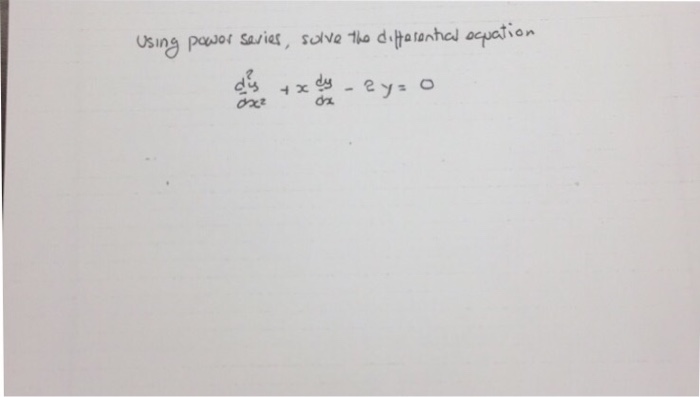 Using power series, solve the differential equation
d²y/dx² + x dy/dx - 2y = 0